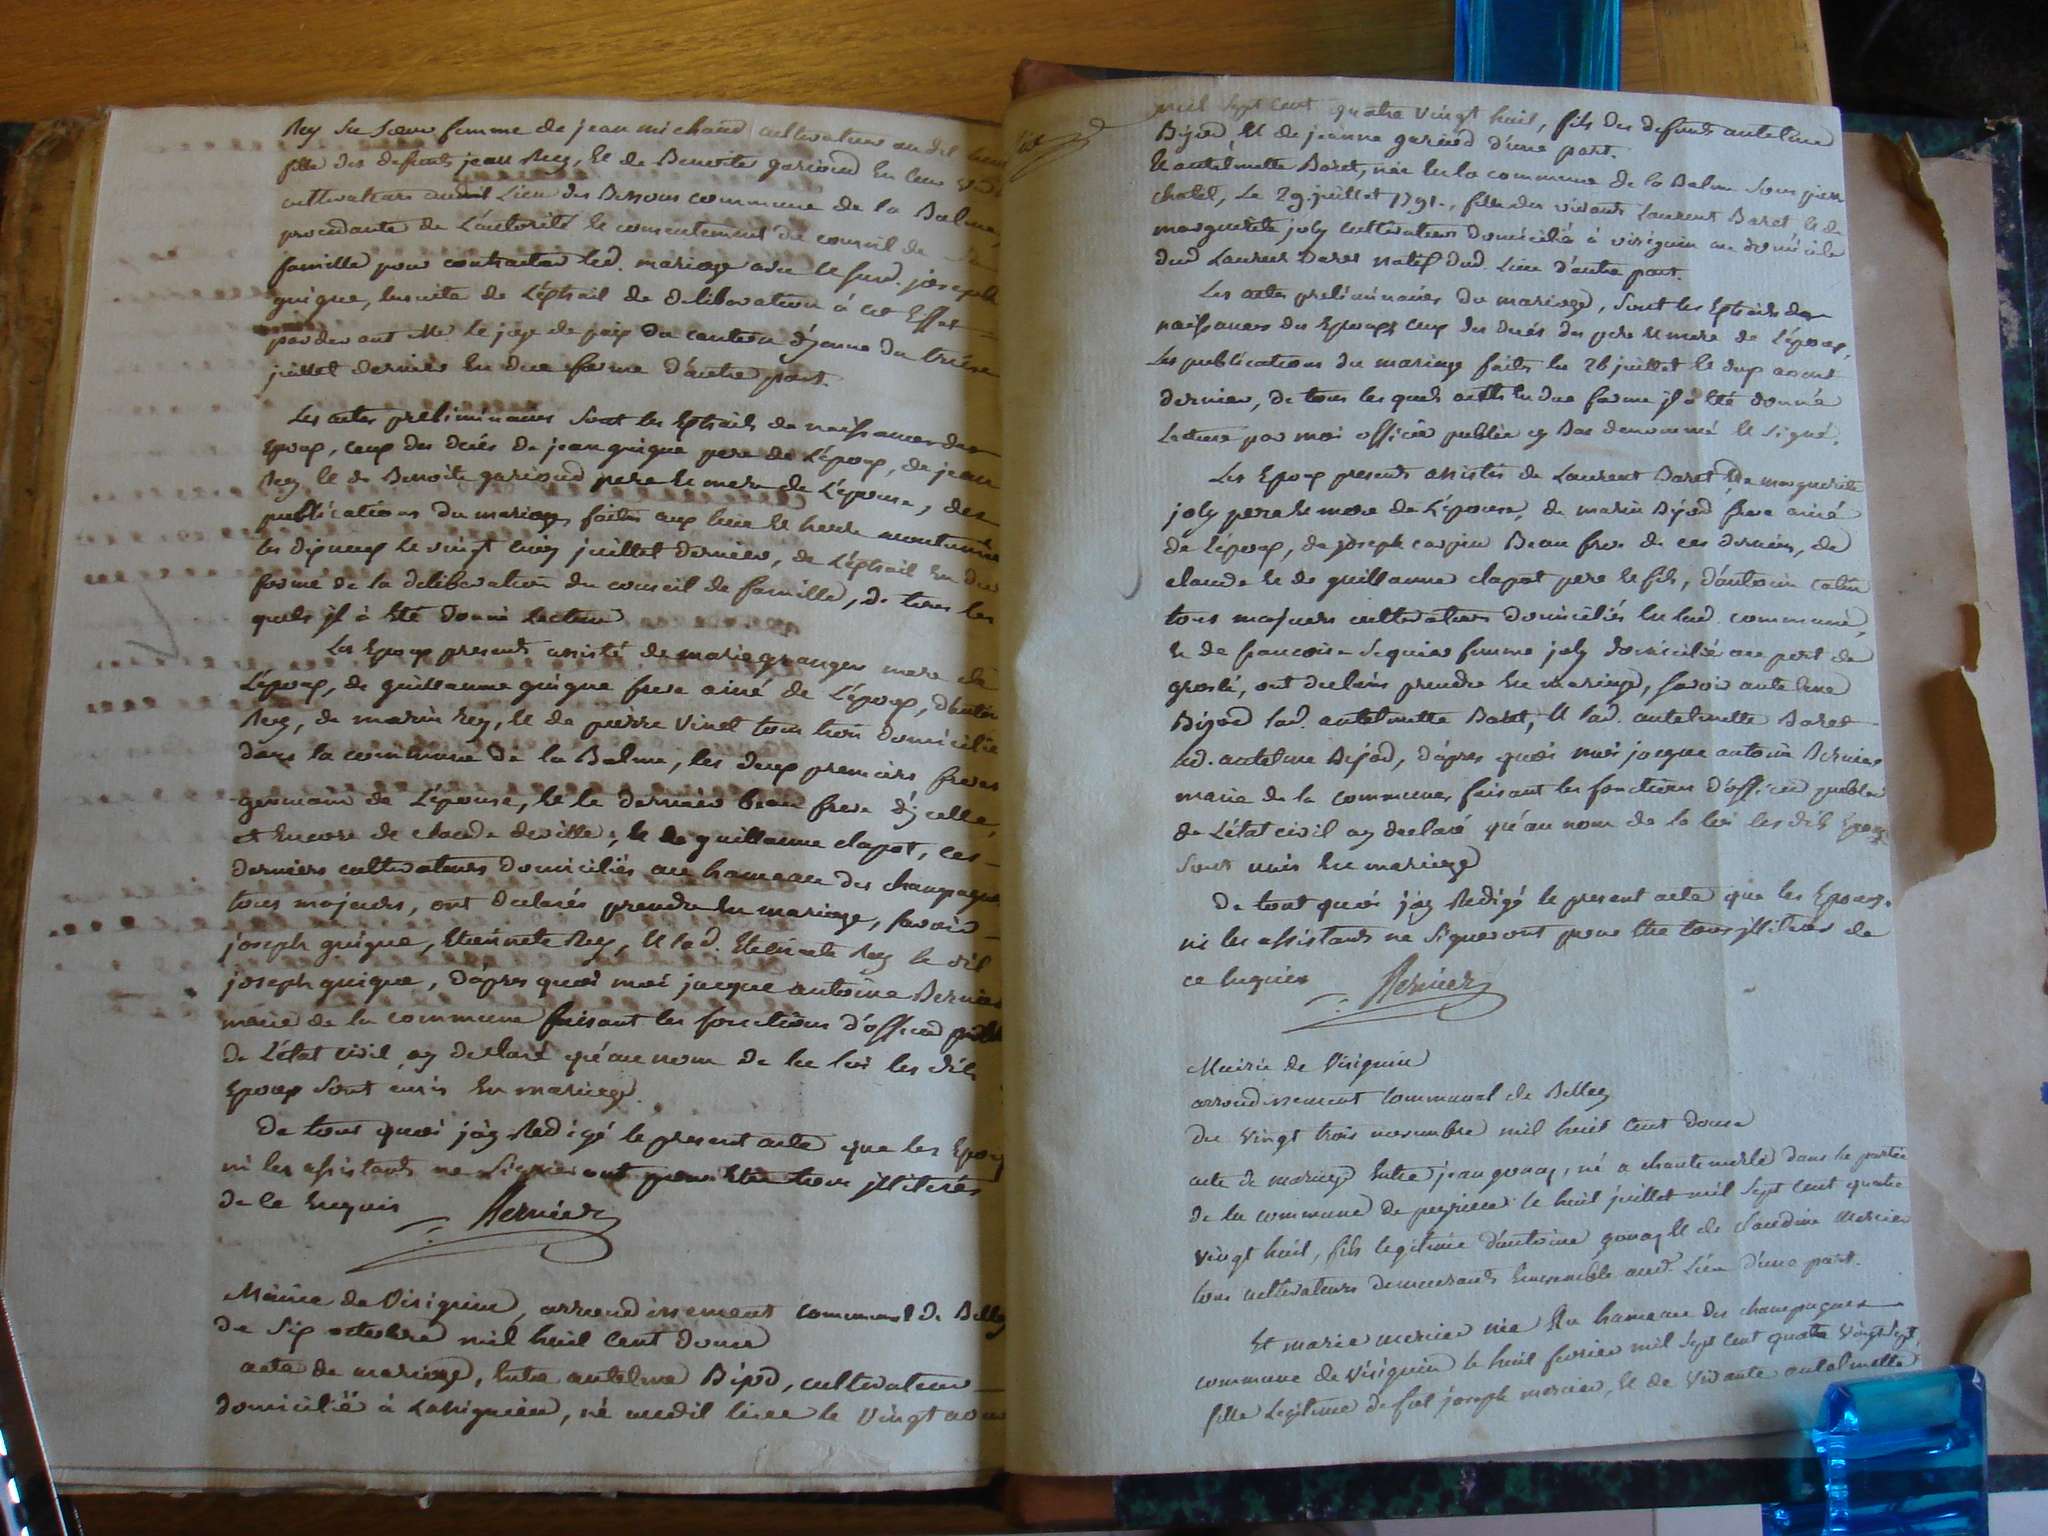 Rey sa sœur femme de jean michaud cultivateur au dit lieu
fille des defunts jean Rey, et de Benoite garioud en leur
cultivateurs audit Lieu des Bessons commune de la Balme,
procedante de L'autorité le consentement du conseil de
famille pour contracter led. mariage avec le sud. joseph
guigue, ensuite de L'extrait de deliberation à cet Effet
pardevant Mr. le juge de paix du canton d'yenne du treize
juillet dernier en due forme d'autre part.
Les actes preliminaires sont les Extraits de naissances des
Epoux, ceux des décés de jean guigue pere de L'époux, de jean
Rey et de Benoite garioud pere et mere de L'épouse, des
publications du mariage faites aux lieu et heure accoutumée
les dixneuf et vingt six juillet dernier, de L'extrait en due
forme de la deliberation du conseil de famille, de tous les
quels il à été donné Lecture
Les Epoux presents assisté de marie granger mere de
L'époux, de guillaume guigue frere ainé de L'époux, d'antoine
Rey, de marin Rey, et de pierre Vinet tous trois domicilié
dans la commune de la Balme, les deux premiers freres
germain de L'épouse, et le dernier beau frere d'ycelle,
et Encore de claude deville, et de guillaume clapot, ces
derniers cultivateurs domiciliés au hameau des champagnes
tous majeurs, ont declarés prendre en mariage, savoir
joseph guigue, Etiennete Rey, et lad. Etiennete Rey le dit
joseph guigue, d'après quoi moi jacque antoine Bernier
maire de la commune faisant les fonctions d'officier public
de L'état civil ay declaré qu'au nom de la loi les dits
Epoux sont unis en mariage.
De tout quoi j'ay Redigé le present acte que les Epoux
ni les assistants ne signeront pour être tous illiterés
de ce Enquis Bernier
Mairie de Virignin, arrondissement communal de Belley
du six octobre mil huit cent douze
acte de mariage, Entre antelme Bijod, cultivateur
domicilié à Lassignieu, né audit lieu le vingt aout
mil sept cent quatre vingt huit, fils des defunts antelme
Bijod et de jeanne gariod d'une part.
Et antelmette Baret, née en la commune de la Balme sous pierre
chatel, Le 29 juillet 1791., fille des vivants Laurent Baret, et de
marguerite joly cultivateurs domicilié à virignin au domicile
dud Laurent Baret natif dud. Lieu d'autre part.
Les actes preliminaires du mariage, sont les Extraits de
naissances des Epoux, ceux des décés des pere et mere de L'époux,
Les publications du mariage faites les 26 juillet et deux aout
dernier, de tous lesquels actes en due forme il à été donné
Lecture par moi officier public cy Bas denommé et signé.
Les Epoux presents assistés de Laurent Baret et de marguerite
joly pere et mere de L'épouse, de marin Bijod frere ainé
de L'époux, de joseph carjeu Beau frere de ces derniers, de
claude et de guillaume clapot pere et fils, d'antoine catin
tous majeurs cultivateurs domiciliés en lad. commune,
et de francoise Seguier femme joly domicilié au port de
groslé, ont declarés prendre en mariage, savoir antelme
Bijod lad. antelmette Baret, et lad. antelmette Baret
led. antelme Bijod, d'apres quoi moi jacque antoine Bernier
maire de la commune faisant les fonctions d'officier public
de L'état civil ay declaré qu'au nom de la loi les dits Epoux
sont unis en mariage
De tout quoi j'ay Redigé le present acte que les Epoux
ni les assistants ne signeront pour être tous illiterés de
ce Enquis Bernier
Mairie de Virignin
arrondissement communal de Belley
du vingt trois novembre mil huit cent douze
acte de mariage Entre jean gonay, né a chantemerle dans la partie
de la commune de peyrieu le huit juillet mil sept cent quatre
vingt huit, fils legitime d'antoine gonay et de Claudine Mercier
tous cultivateurs demeurants Ensemble aud. Lieu d'une part.
Et marie mercier née Au hameau des champagnes
commune de Virignin le huit fevrier mil sept cent quatre vingt sept,
fille Legitime de feu joseph mercier, et de vivante antelmette